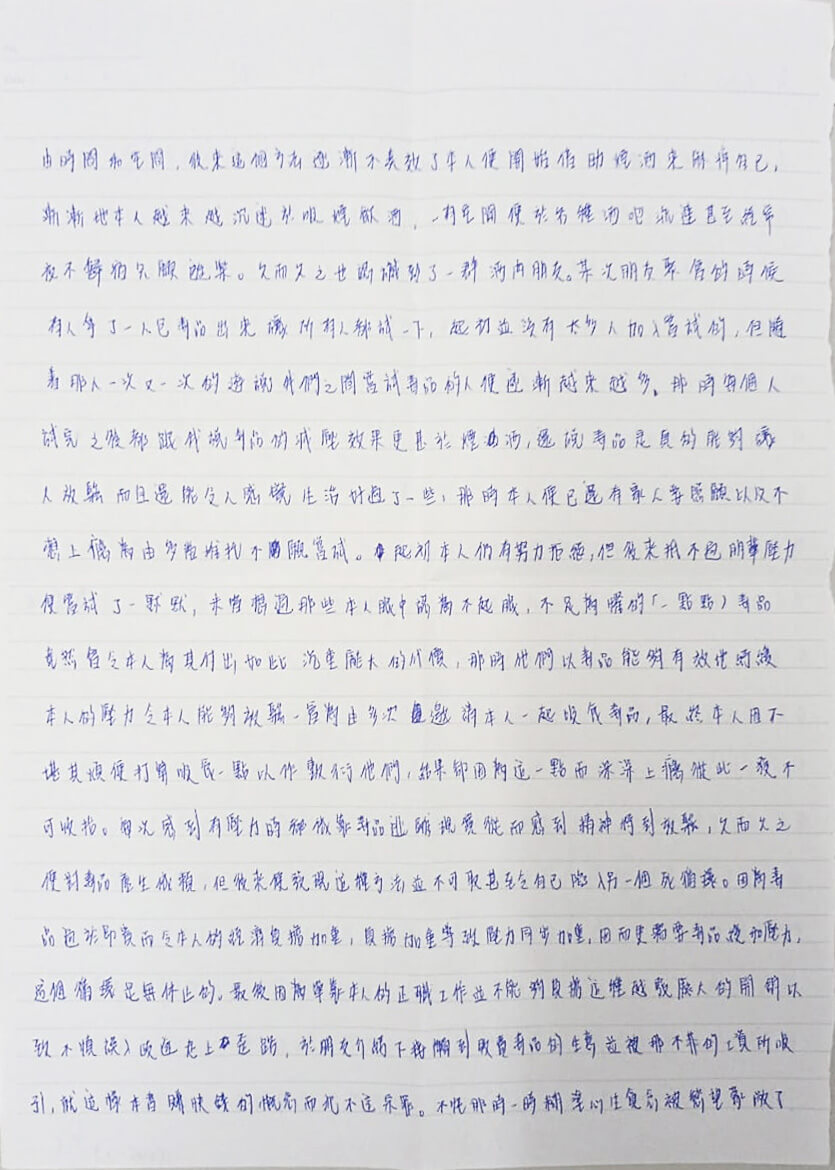 由時間和空間，後來這個方法逐漸不奏效了本人便開始借助煙酒來解掙自己，
漸漸地本人越來越沉迷於吸煙飲酒，一有空間便於各種酒吧流連甚至
夜不歸。久而久之也認識到了一群酒肉朋友。某次朋友聚會的時侯
有人拿了一人包毒品出來讓所有人都試一下，起初並沒有太多人加入嘗試的，但隨
著那人一次又一次的遊說我們之間嘗試毒品的人便逐漸越來越多。那時每個人
試完之後都跟我說毒品的減壓效果更甚於煙酒，還說毒品是真的能夠讓
人放鬆而且還能令人感覺生活好過了一些，那時本人便已還有家人要照顧以及不
想上癮為由多番推托不願嘗試。起初本人仍有努力拒絕，但後來抵不過朋輩壓力
便嘗試了一點點，未曾想過那些本人眼中認為不起眼，不足為懼的「一點點」毒品
竟然會令本人為其付出如此沉重龐大的代價，那時他們以毒品能夠有效地舒緩
本人的壓力令本人能夠放鬆一會為由多次邀請本人一起吸食毒品，最終本人因不
堪其煩便打算吸食一點以作敷衍他們，結果卻因為這一點而深深上癮從此一發不
可收拾。每次感到有壓力時都依靠毒品逃離現實從而感到精神得到放鬆，久而久之
便對毒品產生依賴，但後來便發現這種方法並不可取甚至令自己陷入另一個死循環。因為毒
品過於昂貴而令本人的經濟負擔加重，負擔加重導致壓力同步加重，因而更需要毒品緩和壓力，
這個循環是無休止的。最後因為單靠本人的正職工作並不能夠負擔這種越發龐大的開銷以
致不慎誤入歧途走上歪路，於朋友介紹下接觸到販賣毒品的生意並被那不菲的工資所吸
引，就這樣本着賺快錢的概念而犯下這宗罪。不忱那時一時糊塗心生貪念被慾望驅散了